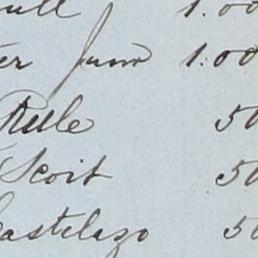 ull 1.00
er Junr 1.00
Rule 50
Scoit 50
Castelazo 50